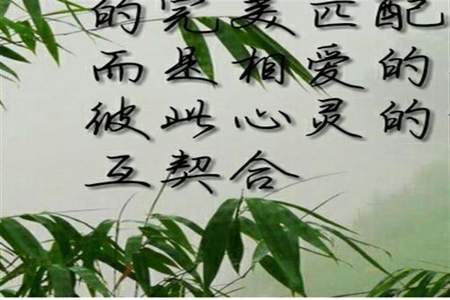 的完美匹配
而是相爱的
彼此心灵的
互契合